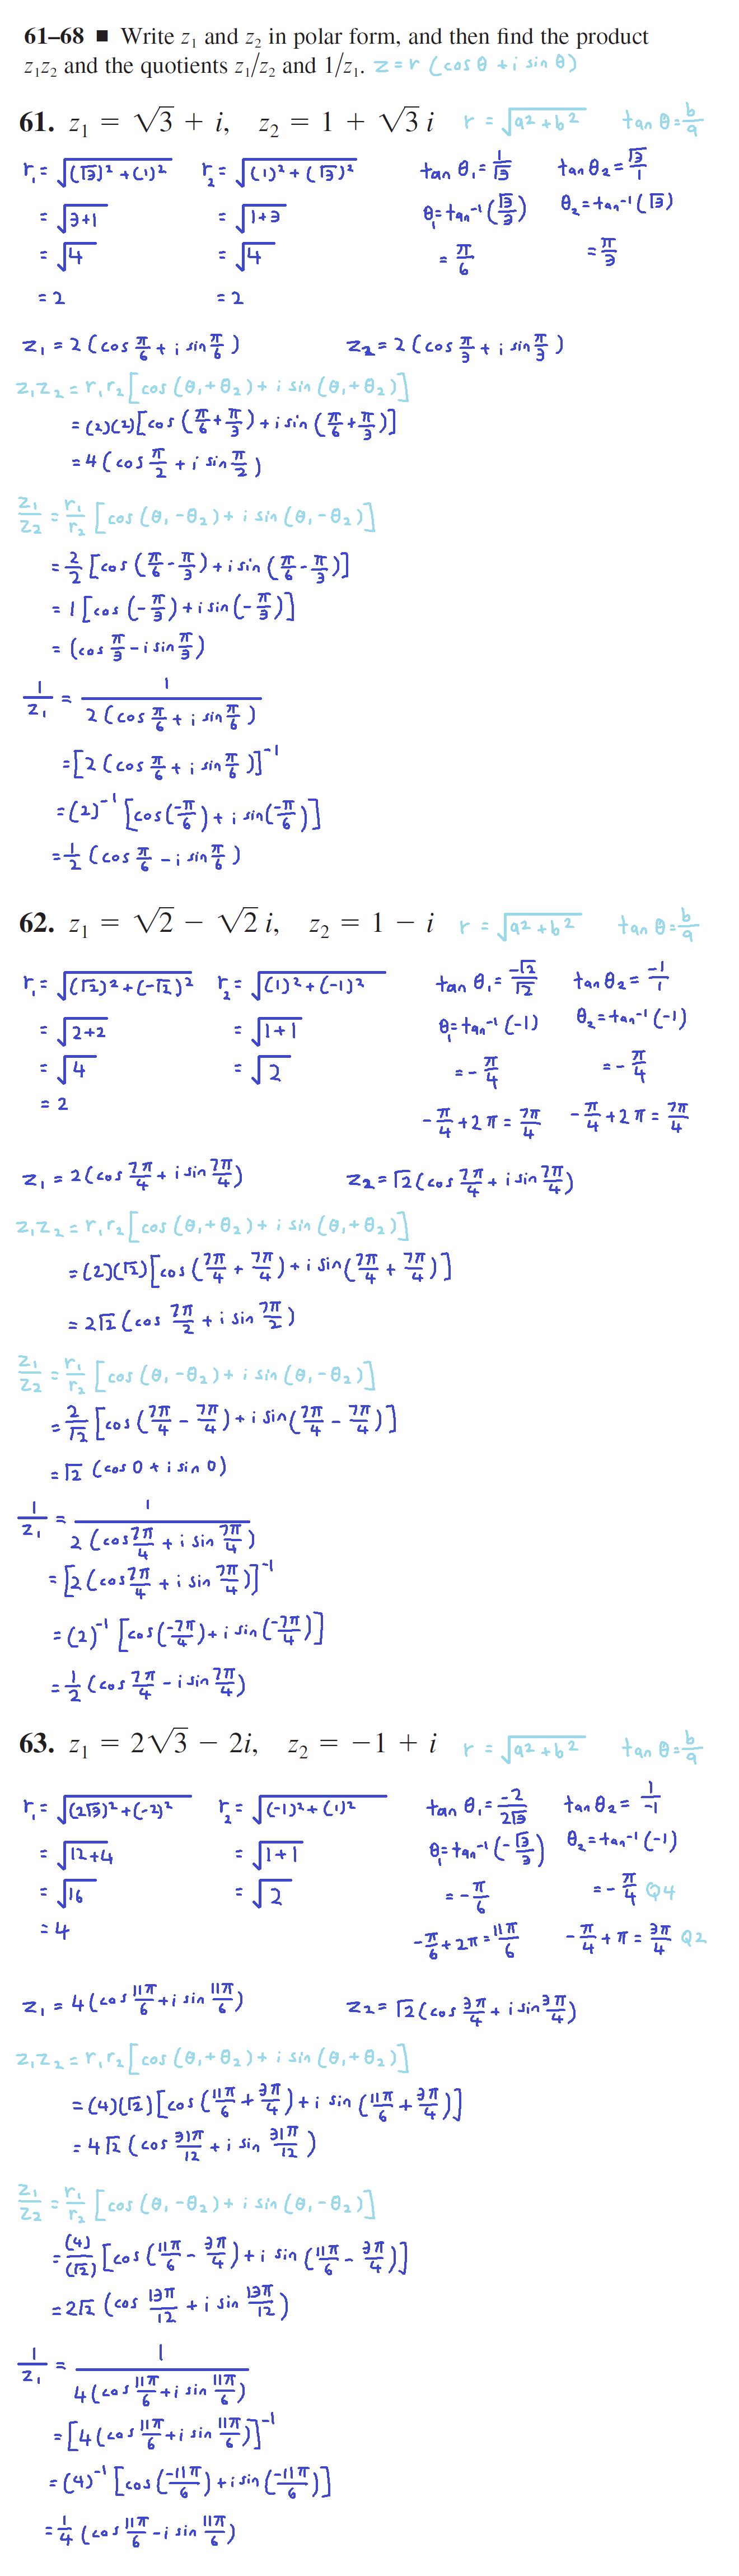 61–68 ■ Write z₁ and z₂ in polar form, and then find the product
z₁z₂ and the quotients z₁/z₂ and 1/z₁. z = r (cos θ + i sin θ)
61. z₁ = √3 + i, z₂ = 1 + √3 i r = √(a² + b²) tan θ = b/a
r₁ = √((√3)² + (1)²) r₂ = √((1)² + (√3)²) tan θ₁ = 1/√3 tan θ₂ = √3/1
= √(3+1) = √(1+3) θ₁ = tan⁻¹(√3/3) θ₂ = tan⁻¹(√3)
= √4 = √4 = π/6 = π/3
= 2 = 2
z₁ = 2 (cos π/6 + i sin π/6) z₂ = 2 (cos π/3 + i sin π/3)
z₁z₂ = r₁r₂[cos (θ₁+θ₂) + i sin (θ₁+θ₂)]
= (2)(2)[cos (π/6 + π/3) + i sin (π/6 + π/3)]
= 4 (cos π/2 + i sin π/2)
z₁/z₂ = r₁/r₂ [cos (θ₁-θ₂) + i sin (θ₁-θ₂)]
= 2/2 [cos (π/6 - π/3) + i sin (π/6 - π/3)]
= 1 [cos (-π/3) + i sin (-π/3)]
= (cos π/3 - i sin π/3)
1/z₁ = 1/(2 (cos π/6 + i sin π/6))
= [2 (cos π/6 + i sin π/6)]⁻¹
= (2)⁻¹ [cos(-π/6) + i sin(-π/6)]
= 1/2 (cos π/6 - i sin π/6)
62. z₁ = √2 − √2 i, z₂ = 1 − i r = √(a² + b²) tan θ = b/a
r₁ = √((√2)² + (-√2)²) r₂ = √((1)² + (-1)²) tan θ₁ = -√2/√2 tan θ₂ = -1/1
= √(2+2) = √(1+1) θ₁ = tan⁻¹(-1) θ₂ = tan⁻¹(-1)
= √4 = √2 = -π/4 = -π/4
= 2 -π/4 + 2π = 7π/4 -π/4 + 2π = 7π/4
z₁ = 2(cos 7π/4 + i sin 7π/4) z₂ = √2(cos 7π/4 + i sin 7π/4)
z₁z₂ = r₁r₂[cos (θ₁+θ₂) + i sin (θ₁+θ₂)]
= (2)(√2)[cos (7π/4 + 7π/4) + i sin(7π/4 + 7π/4)]
= 2√2 (cos 7π/2 + i sin 7π/2)
z₁/z₂ = r₁/r₂ [cos (θ₁-θ₂) + i sin (θ₁-θ₂)]
= 2/√2 [cos (7π/4 - 7π/4) + i sin(7π/4 - 7π/4)]
= √2 (cos 0 + i sin 0)
1/z₁ = 1/(2 (cos 7π/4 + i sin 7π/4))
= [2 (cos 7π/4 + i sin 7π/4)]⁻¹
= (2)⁻¹ [cos(-7π/4) + i sin(-7π/4)]
= 1/2 (cos 7π/4 - i sin 7π/4)
63. z₁ = 2√3 − 2i, z₂ = −1 + i r = √(a² + b²) tan θ = b/a
r₁ = √((2√3)² + (-2)²) r₂ = √((-1)² + (1)²) tan θ₁ = -2/2√3 tan θ₂ = 1/-1
= √(12+4) = √(1+1) θ₁ = tan⁻¹(-√3/3) θ₂ = tan⁻¹(-1)
= √16 = √2 = -π/6 = -π/4 Q4
= 4 -π/6 + 2π = 11π/6 -π/4 + π = 3π/4 Q2
z₁ = 4(cos 11π/6 + i sin 11π/6) z₂ = √2(cos 3π/4 + i sin 3π/4)
z₁z₂ = r₁r₂[cos (θ₁+θ₂) + i sin (θ₁+θ₂)]
= (4)(√2)[cos (11π/6 + 3π/4) + i sin (11π/6 + 3π/4)]
= 4√2 (cos 31π/12 + i sin 31π/12)
z₁/z₂ = r₁/r₂ [cos (θ₁-θ₂) + i sin (θ₁-θ₂)]
= (4)/(√2) [cos (11π/6 - 3π/4) + i sin (11π/6 - 3π/4)]
= 2√2 (cos 13π/12 + i sin 13π/12)
1/z₁ = 1/(4(cos 11π/6 + i sin 11π/6))
= [4(cos 11π/6 + i sin 11π/6)]⁻¹
= (4)⁻¹ [cos(-11π/6) + i sin(-11π/6)]
= 1/4 (cos 11π/6 - i sin 11π/6)